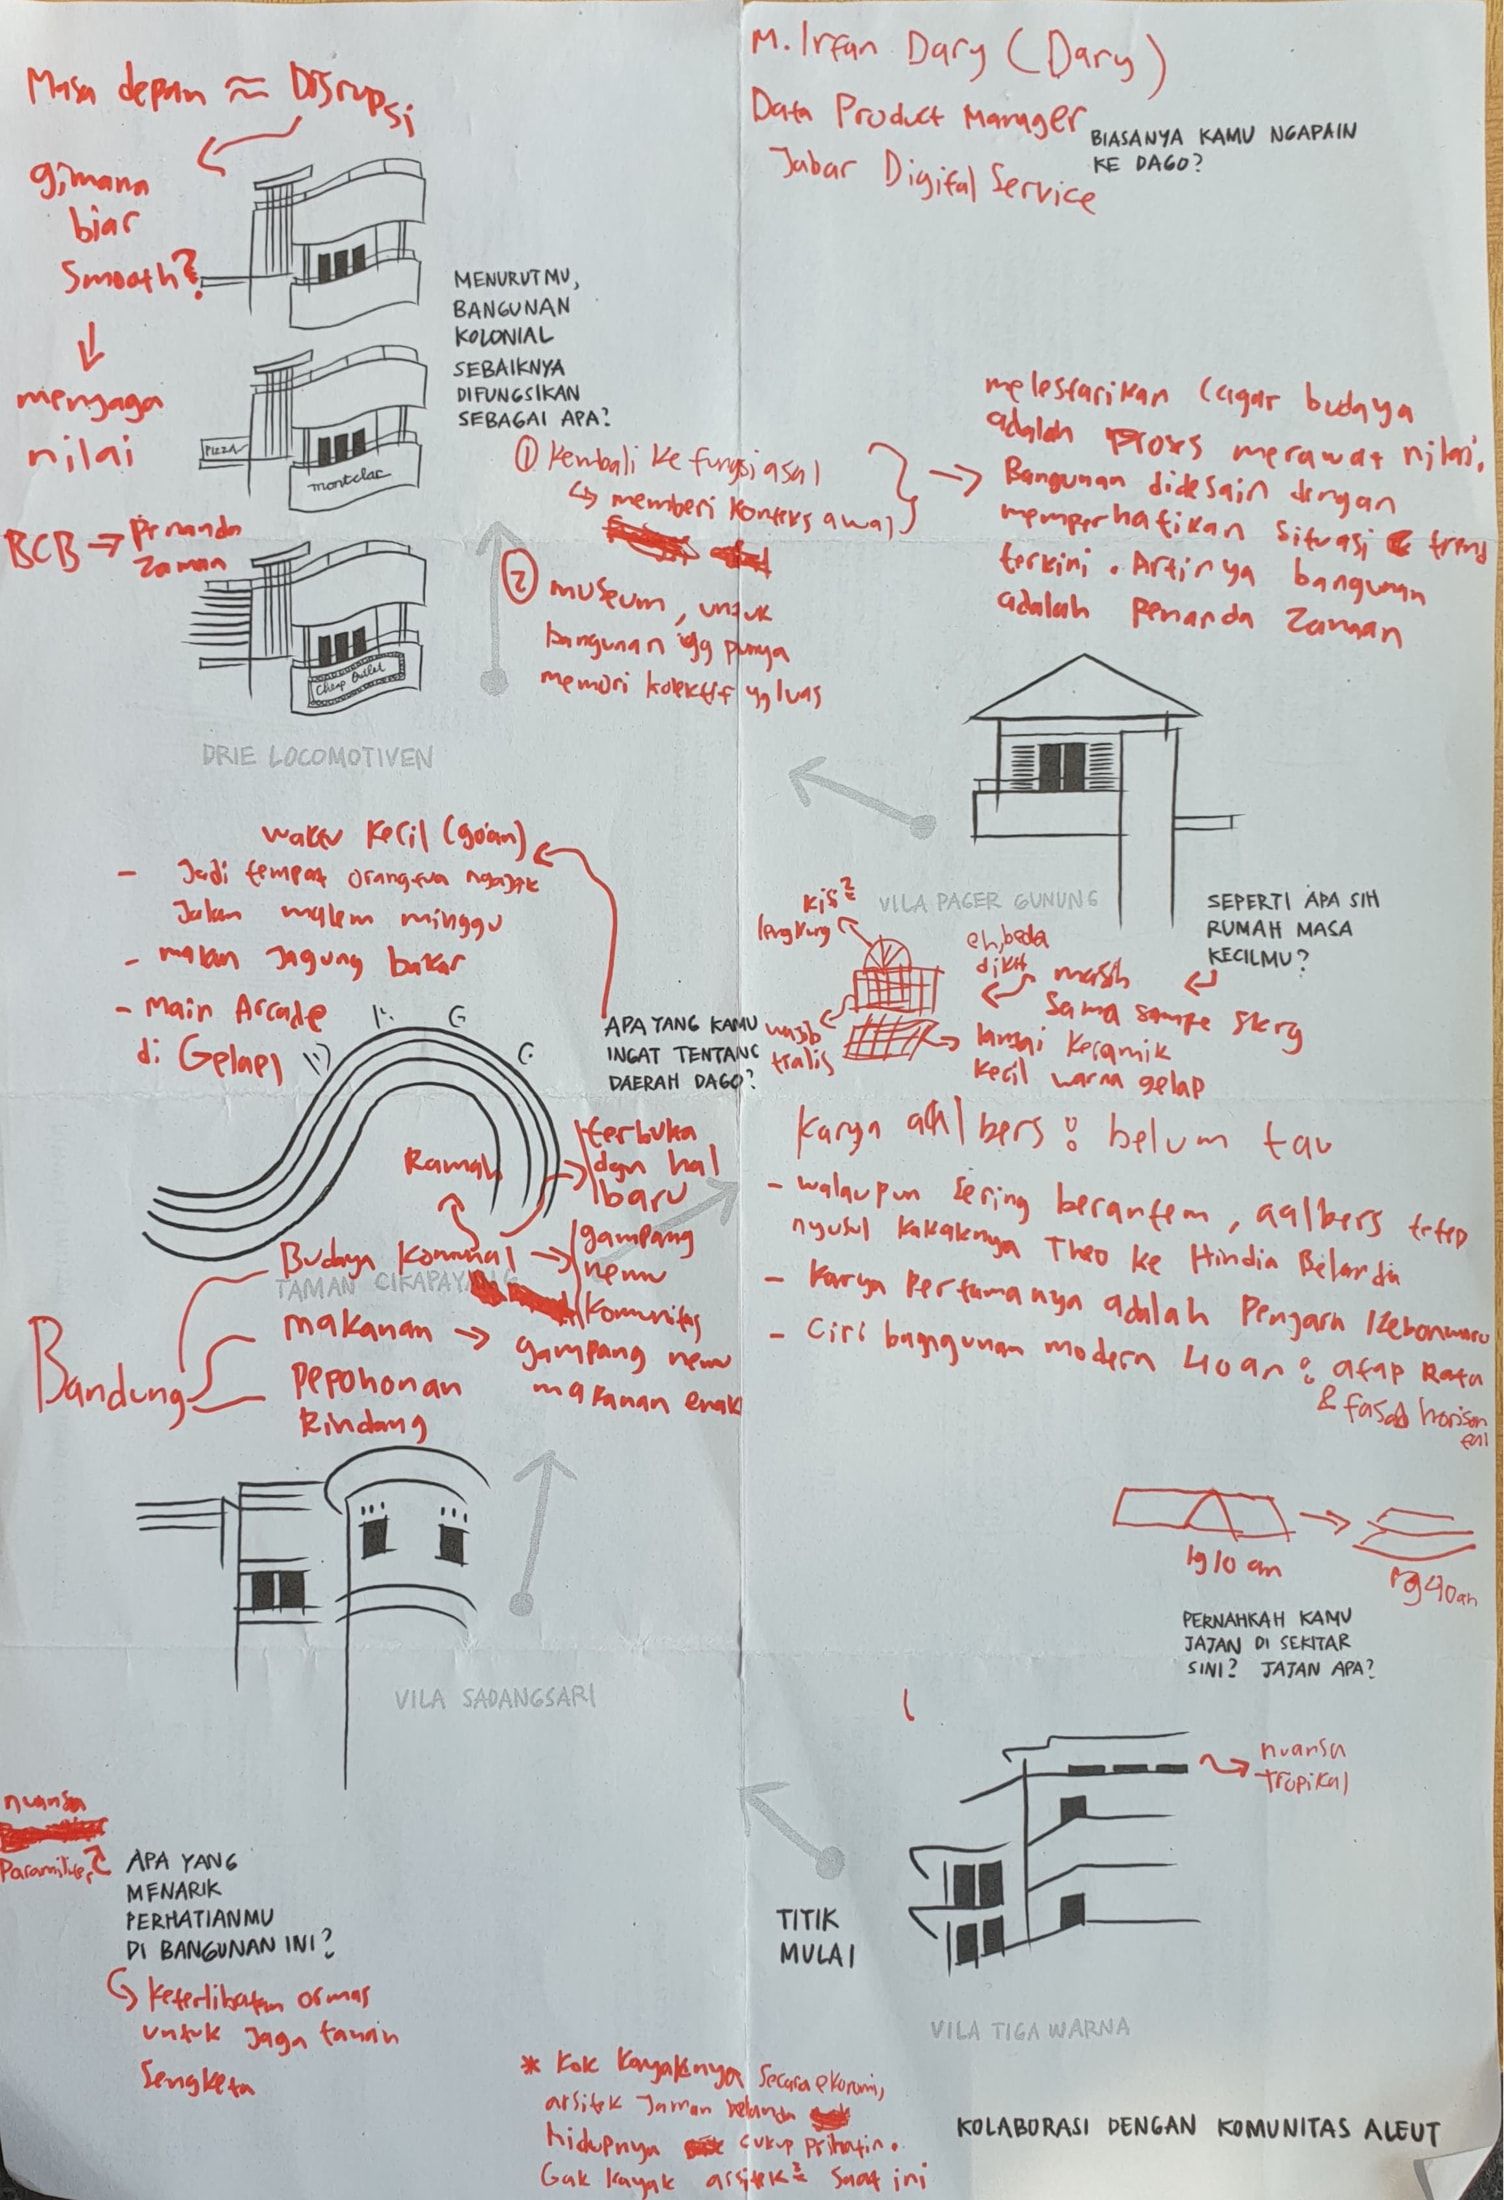 M. Irfan Dary (Dary)
Data Product Manager
Jabar Digital Service
BIASANYA KAMU NGAPAIN
KE DAGO?
Masa depan ≈ Disrupsi
gimana
biar
Smooth?
menjaga
nilai
BCB → Penanda
Zaman
MENURUTMU,
BANGUNAN
KOLONIAL
SEBAIKNYA
DIFUNGSIKAN
SEBAGAI APA?
PIZZA
montclar
Cheap Outlet
DRIE LOCOMOTIVEN
① Kembali ke fungsi asal
↳ memberi konteks awal
② museum, untuk
bangunan yg punya
memori kolektif yg luas
melestarikan cagar budaya
adalah proses merawat nilai,
Bangunan didesain dengan
memperhatikan situasi & trend
terkini. Artinya bangunan
adalah penanda zaman
VILA PAGER GUNUNG
SEPERTI APA SIH
RUMAH MASA
KECILMU?
masih
sama sampe skrg
eh, beda
dikit
kis²
lengkung
wajib
tralis
lantai keramik
kecil warna gelap
waktu kecil (90an)
- Jadi tempat orangtua ngajak
Jalan malem minggu
- makan Jagung bakar
- Main Arcade
di Gelael
APA YANG KAMU
INGAT TENTANG
DAERAH DAGO?
Ramah
terbuka
dgn hal
baru
Budaya Komunal → gampang
nemu
komunitas
TAMAN CIKAPAYANG
Bandung
makanan → gampang nemu
makanan enak
pepohonan
Rindang
Karya aalbers : belum tau
- walaupun sering berantem, aalbers tetep
nyusul kakaknya Theo ke Hindia Belanda
- Karya pertamanya adalah Penjara Kebonwaru
- Ciri bangunan modern 40an : atap Rata
& fasad horison
tal
1910an
1940an
PERNAHKAH KAMU
JAJAN DI SEKITAR
SINI? JAJAN APA?
VILA SADANGSARI
nuansa
APA YANG
MENARIK
PERHATIANMU
DI BANGUNAN INI?
↳ Keterlibatan ormas
untuk Jaga tanah
Sengketa
nuansa
tropikal
TITIK
MULAI
VILA TIGA WARNA
* Kok Kayaknya secara ekonomi,
arsitek Jaman belanda
hidupnya cukup prihatin.
Gak kayak arsitek² saat ini
KOLABORASI DENGAN KOMUNITAS ALEUT